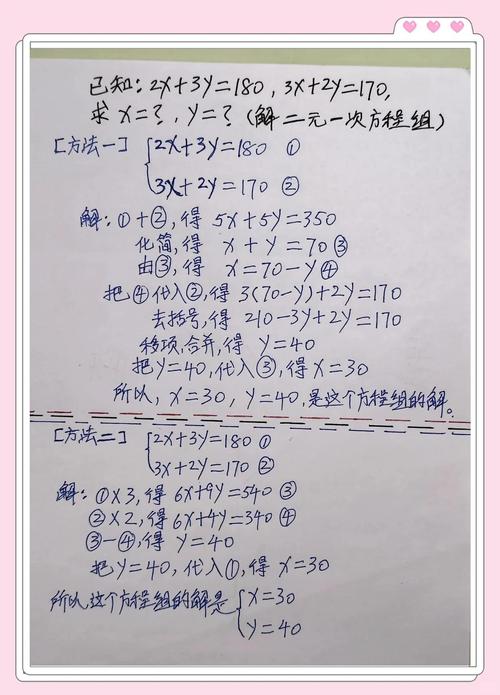 已知:2x+3y=180,3x+2y=170,
求 x=?,y=?(解二元一次方程组)
[方法一] {2x+3y=180 ①
3x+2y=170 ②
解:①+②,得 5x+5y=350
化简,得 x+y=70③
由③,得 x=70-y④
把④代入②,得3(70-y)+2y=170
去括号,得 210-3y+2y=170
移项,合并,得 y=40
把y=40,代入③,得x=30
所以,x=30,y=40,是这个方程组的解。
[方法二] {2x+3y=180 ①
3x+2y=170 ②
解:①×3,得 6x+9y=540 ③
②×2,得 6x+4y=340 ④
③-④,得 y=40
把y=40,代入①,得 x=30
所以这个方程组的解是{x=30
y=40